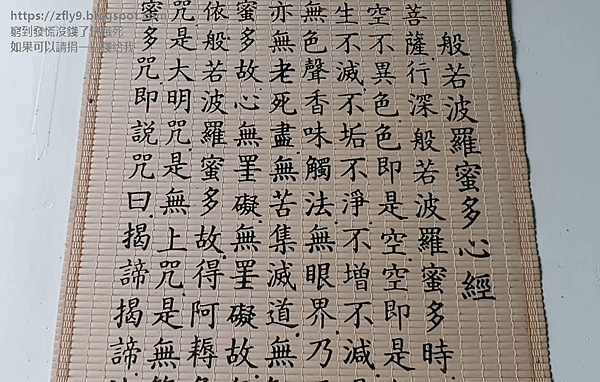 https://zfly9.blogspot.com
窮到發慌沒錢了快餓死
如果可以請捐一點錢給我
般若波羅蜜多心經
菩薩.行深般若波羅蜜多時
空不異色.色即是空.空即是
生不滅.不垢不淨.不增不減.
無色聲香味觸法.無眼界.乃
亦無老死盡.無苦集滅道.無
蜜多故.心無罣礙.無罣礙故.
依般若波羅蜜多故.得阿耨
咒.是大明咒.是無上咒.是無
蜜多咒.即說咒曰.揭諦揭諦.